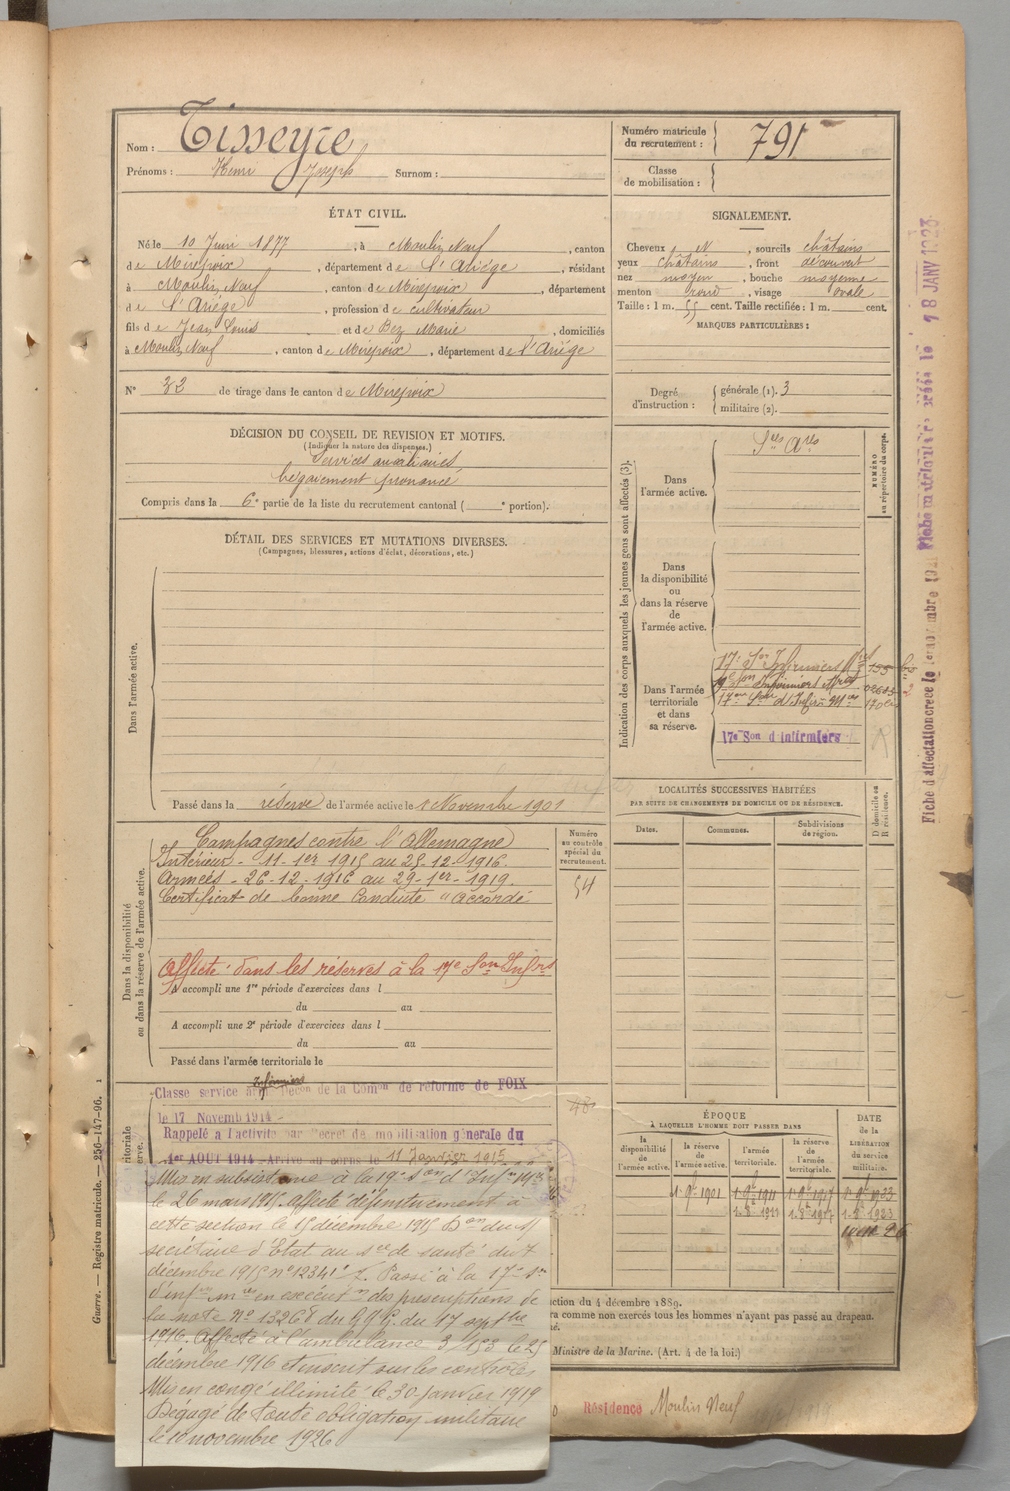 Nom : Tisseyre
Prénoms : Henri Joseph Surnom :
Numéro matricule du recrutement : 791
Classe de mobilisation :
ÉTAT CIVIL.
Né le 10 Juin 1877, à Moulin Neuf, canton
de Mirepoix, département de l'Ariége, résidant
à Moulin Neuf, canton de Mirepoix, département
de l'Ariége, profession de cultivateur
fils de Jean Louis et de Bez Marie, domiciliés
à Moulin Neuf, canton de Mirepoix, département de l'Ariége
N° 32 de tirage dans le canton de Mirepoix
SIGNALEMENT.
Cheveux N, sourcils châtains
yeux châtains, front découvert
nez moyen, bouche moyenne
menton rond, visage ovale
Taille : 1 m. 55 cent. Taille rectifiée : 1 m. cent.
MARQUES PARTICULIÈRES :
Degré d'instruction : générale (1). 3
militaire (2).
DÉCISION DU CONSEIL DE REVISION ET MOTIFS.
(Indiquer la nature des dispenses.)
Services auxiliaires,
bégaiement prononcé
Compris dans la 6e partie de la liste du recrutement cantonal ( e portion).
DÉTAIL DES SERVICES ET MUTATIONS DIVERSES.
(Campagnes, blessures, actions d'éclat, décorations, etc.)
Dans l'armée active.
Passé dans la réserve de l'armée active le 1 Novembre 1901
Indication des corps auxquels les jeunes gens sont affectés (3).
NUMÉRO au répertoire du corps.
Dans l'armée active.
Sces Ares
Dans la disponibilité ou dans la réserve de l'armée active.
Dans l'armée territoriale et dans sa réserve.
17e Son Infirmiers
19e Son Infirmiers
17e Son d'Infirs
17e Son d'Infirmiers
LOCALITÉS SUCCESSIVES HABITÉES
PAR SUITE DE CHANGEMENTS DE DOMICILE OU DE RÉSIDENCE.
Dates. Communes. Subdivisions de région. D. domicile ou R. résidence.
Dans la disponibilité ou dans la réserve de l'armée active.
Numéro au contrôle spécial du recrutement.
54
Campagnes contre l'Allemagne
Intérieur - 11-1er 1915 au 25-12-1916.
Armées - 26-12-1916 au 29-1er-1919.
Certificat de bonne Conduite "Accordé
Affecté dans les réserves à la 17e Son Infrs
A accompli une 1re période d'exercices dans l
du au
A accompli une 2e période d'exercices dans l
du au
Passé dans l'armée territoriale le
Classé service armé Infirmiers Décon de la Comon de réforme de FOIX
le 17 Novemb 1914 -
Rappelé à l'activité par Décret de mobilisation générale du
1er AOUT 1914 - Arrivé au corps le 11 Janvier 1915
Mis en subsistance à la 19e Son d'Infrs
le 26 mars 1915. affecté définitivement à
cette section le 15 décembre 1915 Don du
secrétaire d'Etat au sce de santé du 7
décembre 1915 n° 12341 . Passé à la 17e Son
d'infres mres en exécution des prescriptions de
la note N° 13267 du G.Q.G. du 17 septbre
1916. Affecté à l'ambulance 3/153 le 25
décembre 1916 et inscrit sur les controles
Mis en congé illimité le 30 janvier 1919
Dégagé de toute obligation militaire
le 10 novembre 1926
ÉPOQUE
À LAQUELLE L'HOMME DOIT PASSER DANS
DATE de la LIBÉRATION du service militaire.
la disponibilité de l'armée active. la réserve de l'armée active. l'armée territoriale. la réserve de l'armée territoriale.
ction du 4 décembre 1889.
ra comme non exercés tous les hommes n'ayant pas passé au drapeau.
Ministre de la Marine. (Art. 4 de la loi.)
Résidence Moulin Neuf
Guerre. — Registre matricule. — 256-147-96. 1